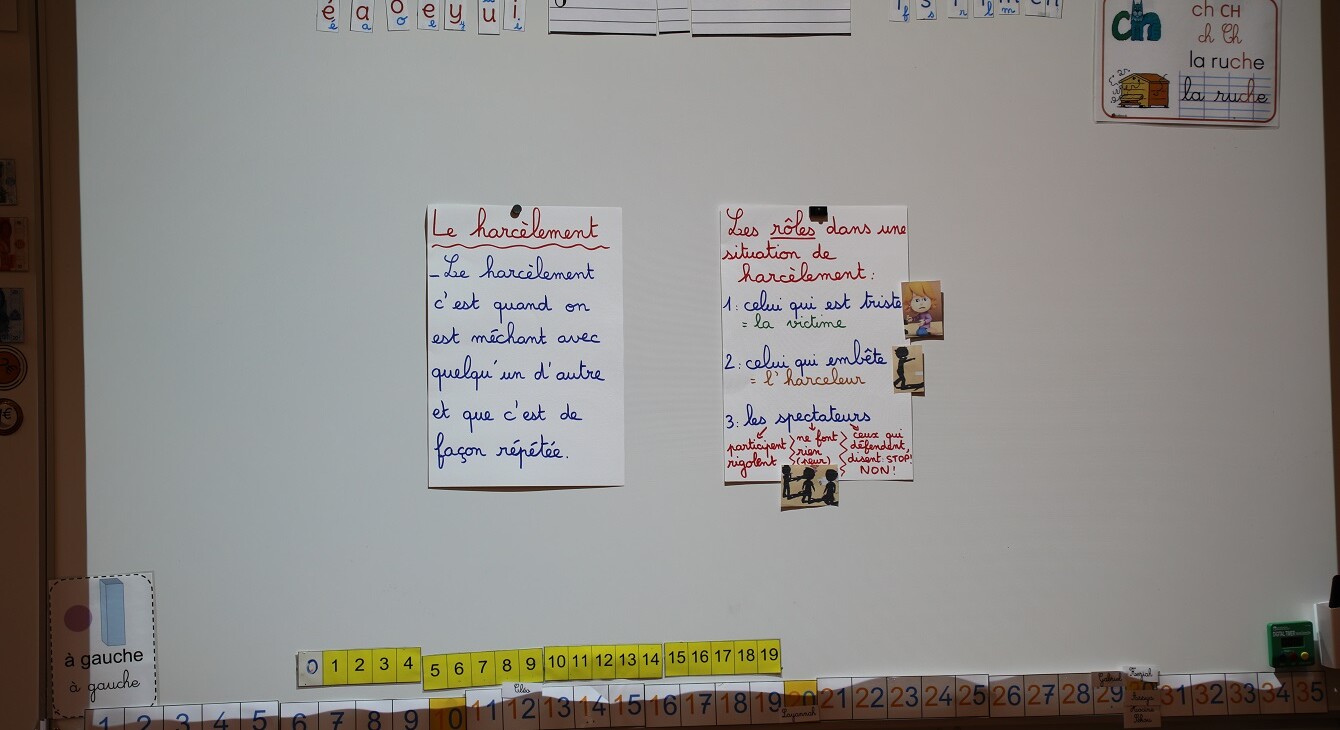 é a o e y u i
e a o e y u i
f s r l m ch
f s r l m
ch
ch CH
ch Ch
la ruche
la ruche
Le harcèlement
- Le harcèlement
c'est quand on
est méchant avec
quelqu'un d'autre
et que c'est de
façon répétée.
Les rôles dans une
situation de
harcèlement :
1: celui qui est triste
= la victime
2: celui qui embête
= l'harceleur
3: les spectateurs
participent
rigolent
ne font
rien
(peur)
ceux qui
défendent,
disent: STOP!
NON!
à gauche
à gauche
0 1 2 3 4 5 6 7 8 9 10 11 12 13 14 15 16 17 18 19
1 2 3 4 5 6 7 8 9 10 11 12 13 14 15 16 17 18 19 20 21 22 23 24 25 26 27 28 29 31 32 33 34 35
Cléo
Gabriel